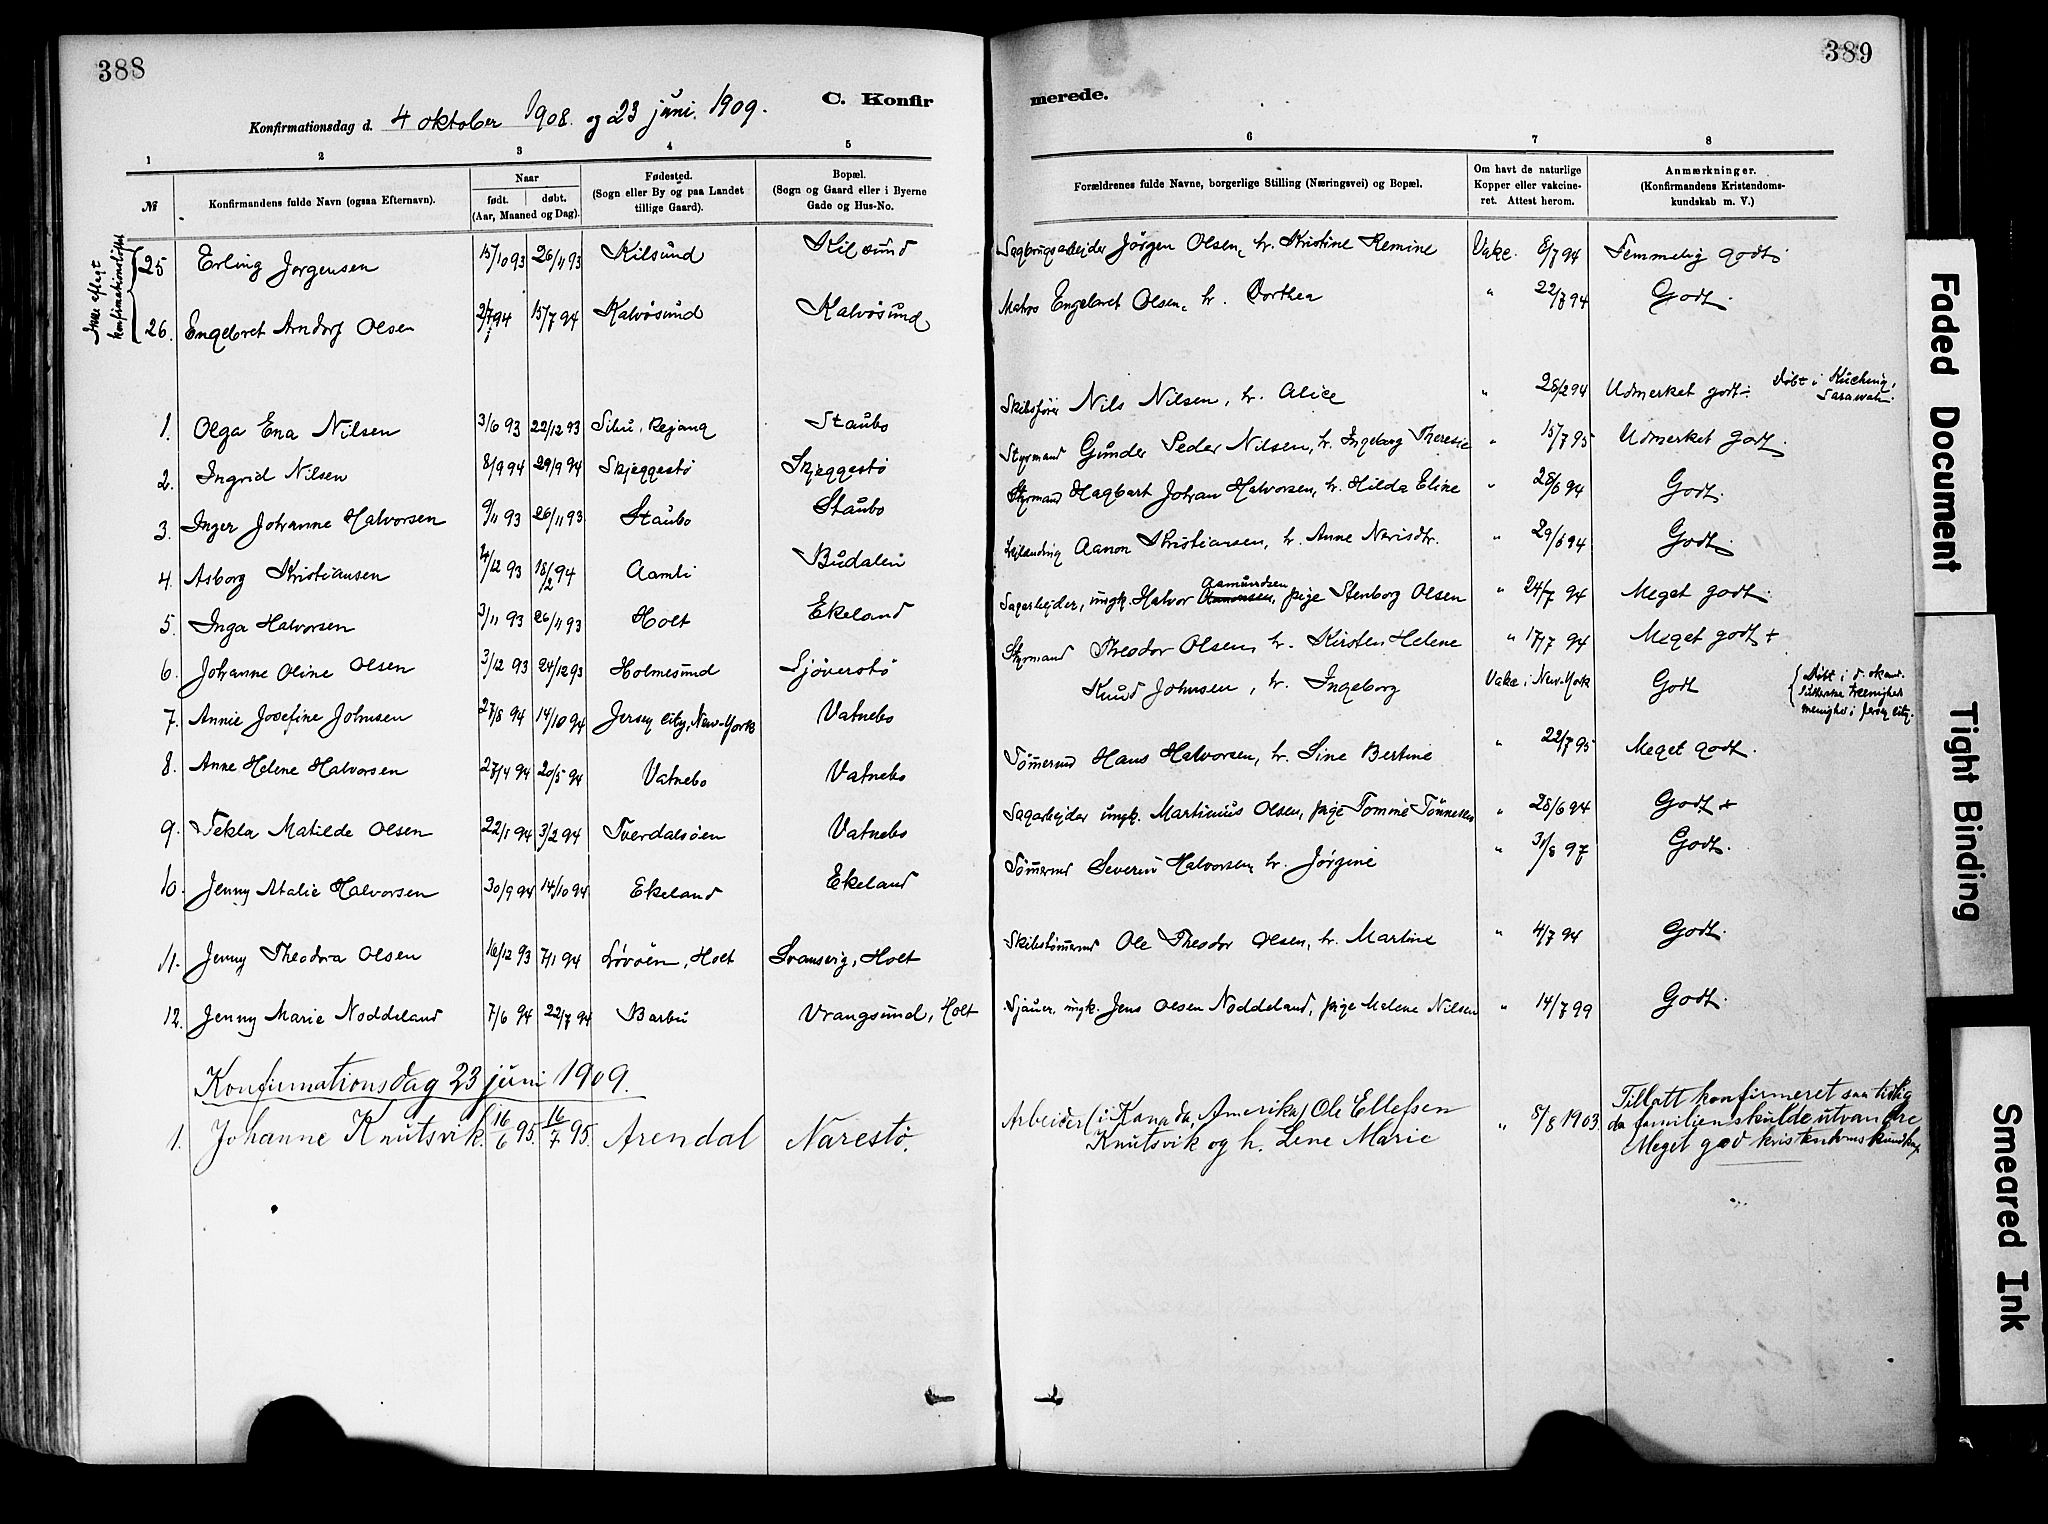 388
C. Konfir
Konfirmationsdag d. 4 oktober 1908. og 23 juni. 1909.
1 2 3 4 5
№ Konfirmandens fulde Navn (ogsaa Efternavn). Naar født. døbt. (Aar, Maaned og Dag). Fødested. (Sogn eller By og paa Landet tillige Gaard). Bopæl. (Sogn og Gaard eller i Byerne Gade og Hus-No.
Ikke aflagt
konfirmationsløftet
25 Erling Jørgensen 15/10 93 26/11 93 Kilsund Kilsund
26. Engebret Arndorf Olsen 2/7 94 15/7 94 Kalvøsund Kalvøsund
1. Olga Ena Nilsen 3/6 93 22/12 93 Sibu, Rejang Staubo
2. Ingrid Nilsen 8/9 94 29/9 94 Skjeggestø Skjeggestø
3. Inger Johanne Halvorsen 9/11 93 26/11 93 Staubo Staubo
4. Asborg Kristiansen 4/12 93 18/2 94 Aamli Budalen
5. Inga Halvorsen 3/11 93 26/11 93 Holt Ekeland
6. Johanne Oline Olsen 3/12 93 24/12 93 Holmesund Sjøverstø
7. Annie Josefine Johnsen 27/8 94 14/10 94 Jersey City, New-York Vatnebo
8. Anne Helene Halvorsen 27/4 94 20/5 94 Vatnebo Vatnebo
9. Tekla Matilde Olsen 22/1 94 3/2 94 Tverdalsøen Vatnebo
10. Jenny Atalie Halvorsen 30/9 94 14/10 94 Ekeland Ekeland
11. Jenny Theodora Olsen 16/12 93 7/1 94 Løvøen, Holt Svansvig, Holt
12. Jenny Marie Noddeland 7/6 94 22/7 94 Barbu Vrangsund, Holt
Konfirmationsdag 23 juni 1909.
1. Johanne Knutsvik. 16/6 95. 16/7 95. Arendal Narestø.
389
merede.
6 7 8
Forældrenes fulde Navne, borgerlige Stilling (Næringsvei) og Bopæl. Om havt de naturlige Kopper eller vakcineret. Attest herom. Anmærkninger. (Konfirmandens Kristendomskundskab m. V.)
Sagbrugsarbejder Jørgen Olsen, h. Kristine Remine Vakc. 8/7 94 Temmelig godt
Matros Engebret Olsen, h. Dorthea " 22/7 94 Godt.
Skibsfører Nils Nilsen, h. Alice " 28/2 94 Udmerket godt Døbt i Kuching, Sarawak.
Styrmand Gunder Peder Nilsen, h. Ingeborg Theresie " 15/7 95 Udmerket godt.
Styrmand Hagbart Johan Halvorsen, h. Hilda Eline " 28/6 94 Godt.
Aanon Kristiansen, h. Anne " 29/6 94 Godt.
Sagarbejder, ungk. Halvor Aamundsen, pige Stenborg Olsen " 24/7 94 Meget godt.
Styrmand Theodor Olsen, h. Kirsten Helene " 17/7 94 Meget godt +
Knud Johnsen, h. Ingeborg Vakc. i New-York Godt Døbt i d. menighed i Jersey City.
Tømmermd Hans Halvorsen, h. Sine Bertine " 22/7 95 Meget godt.
Sagarbejder ungk. Martinius Olsen, pige Tomine Tønnesen " 28/6 94 Godt +
Tømmermd Severin Halvorsen, h. Jørgine " 31/8 97 Godt.
Skibstømmermd Ole Theodor Olsen, h. Martine " 4/7 94 Godt.
Sjauer, ungk. Jens Olsen Noddeland, pige Helene Nilsen " 14/7 99 Godt.
Arbeider (i Kanada, Amerika) Ole Ellefsen
Knutsvik og h. Lene Marie " 5/8 1903.
Tillatt konfirmeret saa tidlig
da familien skulde utvandre
Meget god kristendomskundskap
Faded Document
Tight Binding
Smeared Ink